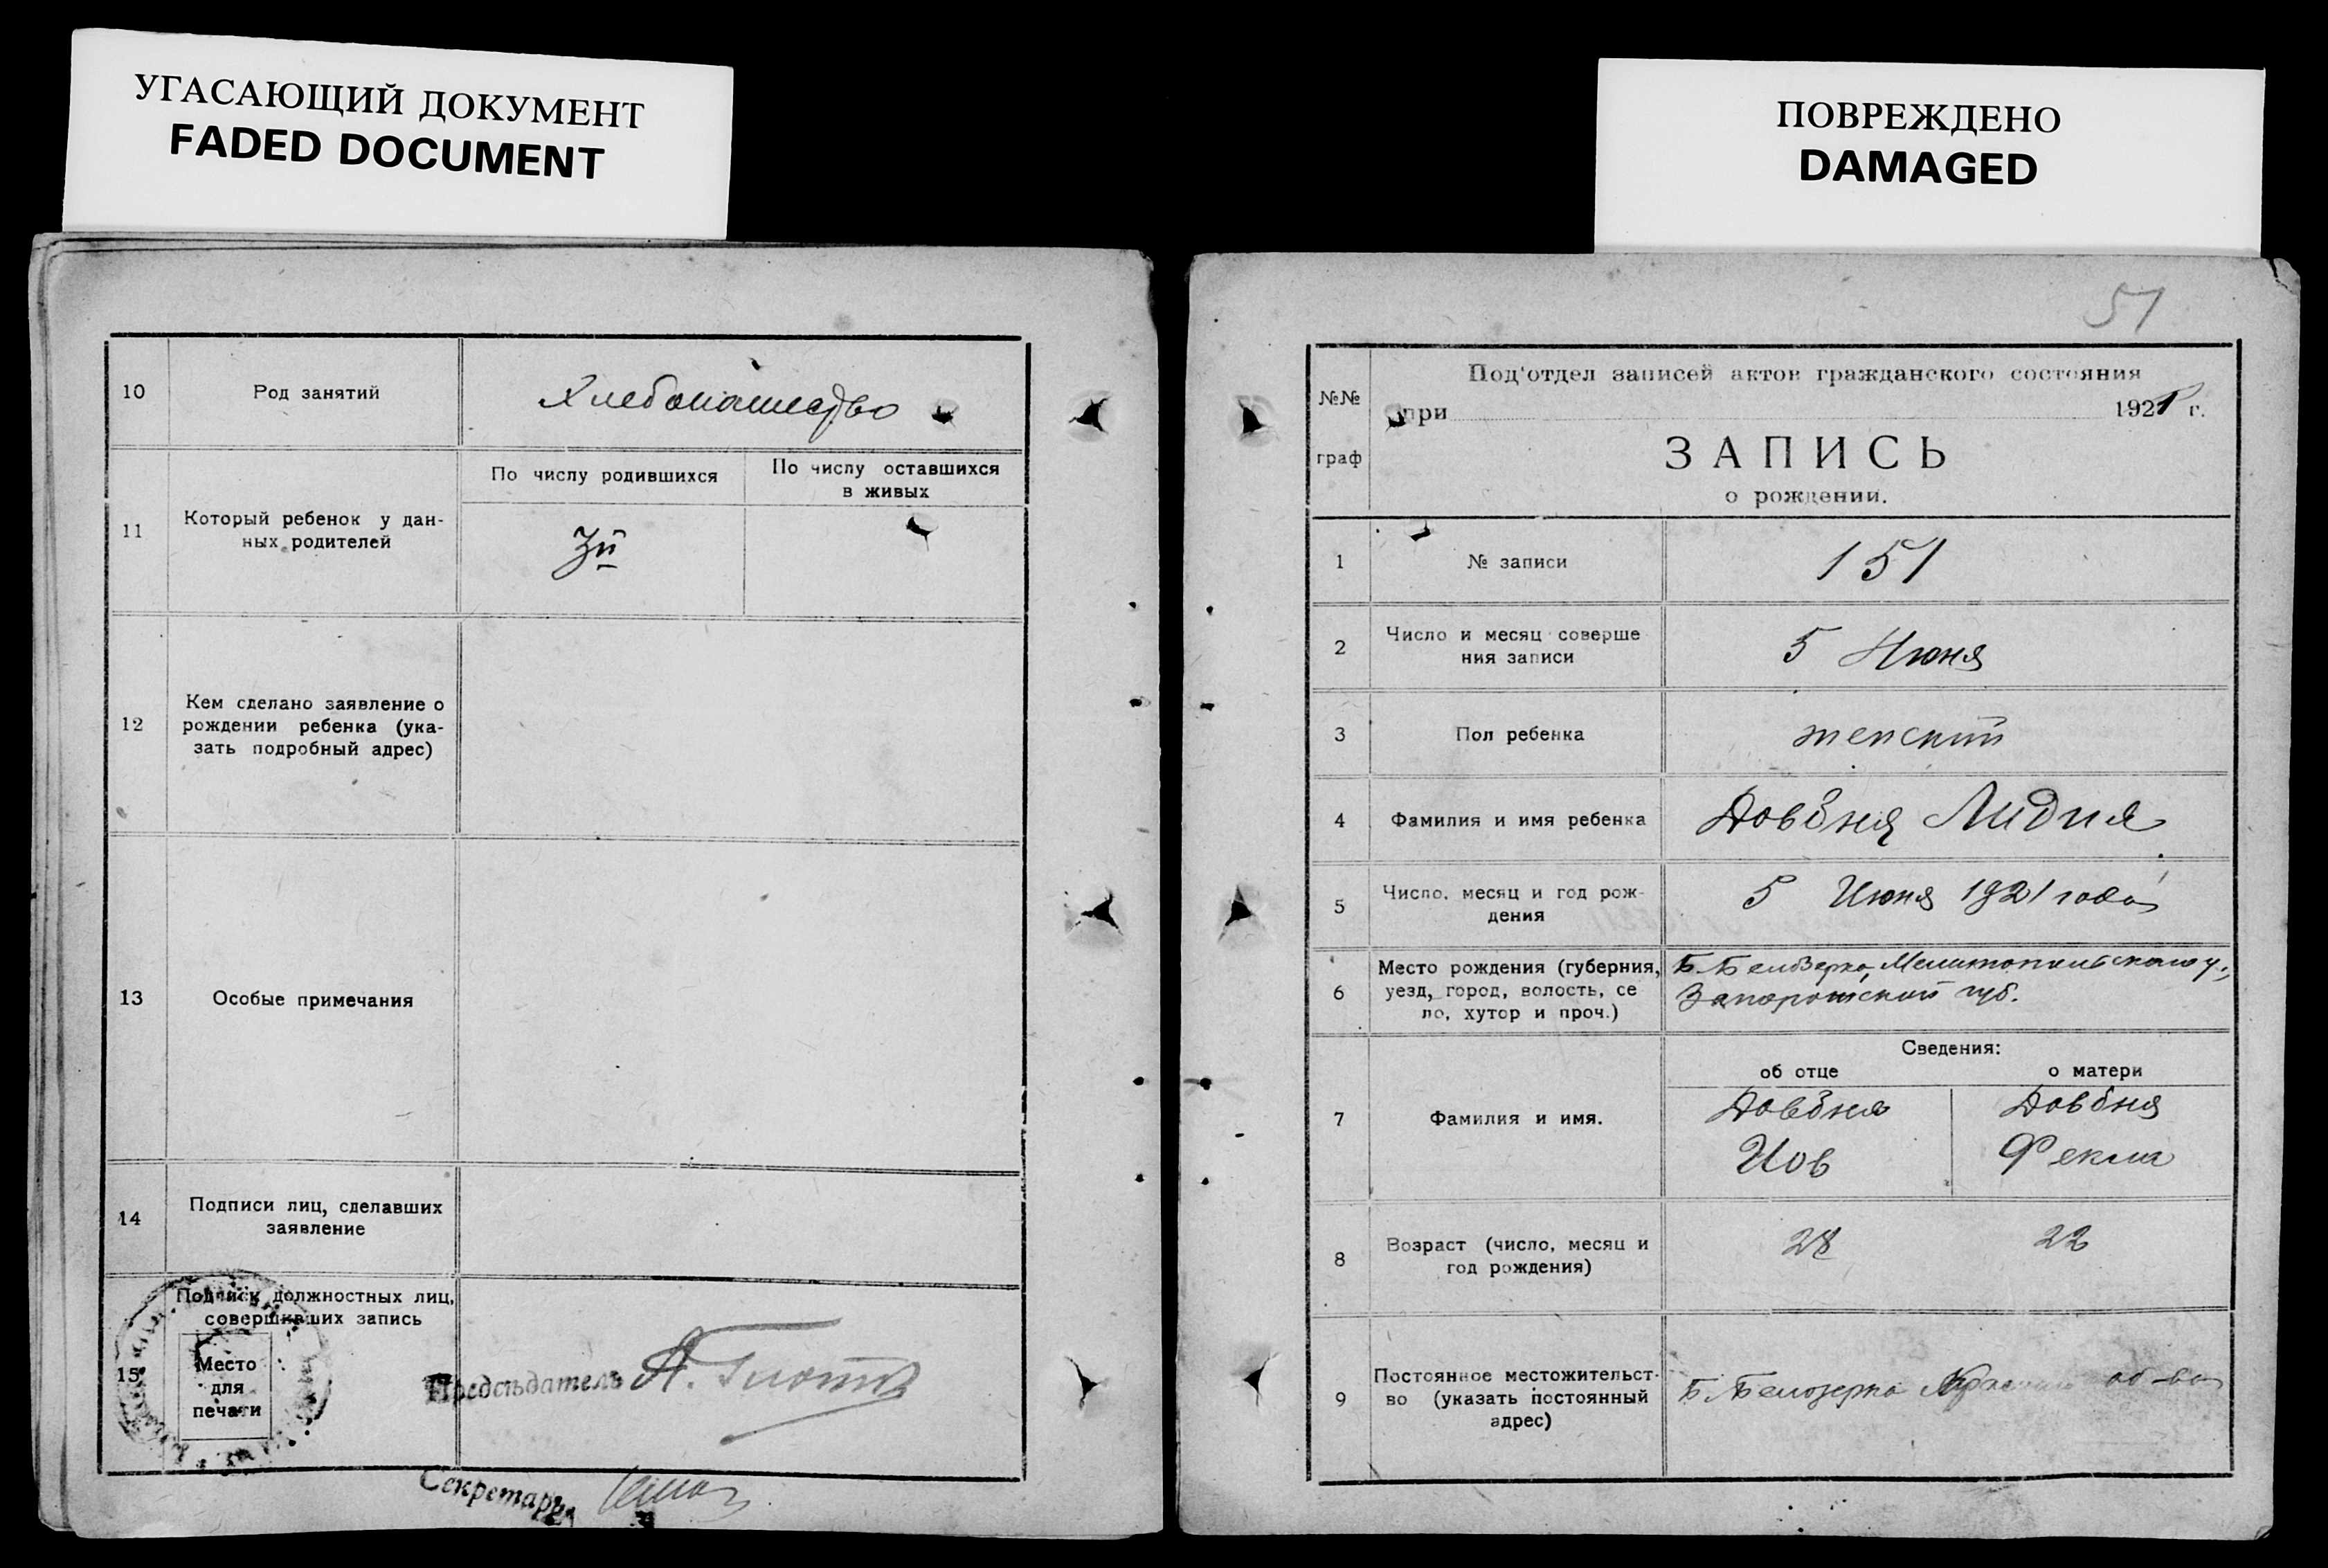 УГАСАЮЩИЙ ДОКУМЕНТ
FADED DOCUMENT
10 Род занятий Хлебопашество
11 Который ребенок у дан-
ных родителей
По числу родившихся
По числу оставшихся
в живых
3й
12 Кем сделано заявление о
рождении ребенка (ука-
зать подробный адрес)
13 Особые примечания
14 Подписи лиц, сделавших
заявление
15 Подписи должностных лиц,
совершивших запись
Место
для
печати
Председатель А.
Секретарь
ПОВРЕЖДЕНО
DAMAGED
51
№№
граф
Под'отдел записей актов гражданского состояния
при 1921 г.
ЗАПИСЬ
о рождении.
1 № записи 151
2 Число и месяц соверше
ния записи
5 Июня
3 Пол ребенка женский
4 Фамилия и имя ребенка Довбня Лидия
5 Число, месяц и год рож-
дения
5 Июня 1921 года
6 Место рождения (губерния,
уезд, город, волость, се
ло, хутор и проч.)
Б. Белозерка, Мелитопольского у.,
Запорожской губ.
Сведения:
об отце
о матери
7 Фамилия и имя.
Довбня
Иов
Довбня
Фекла
8 Возраст (число, месяц и
год рождения)
28 22
9 Постоянное местожительст-
во (указать постоянный
адрес)
Б. Белозерка об-ва